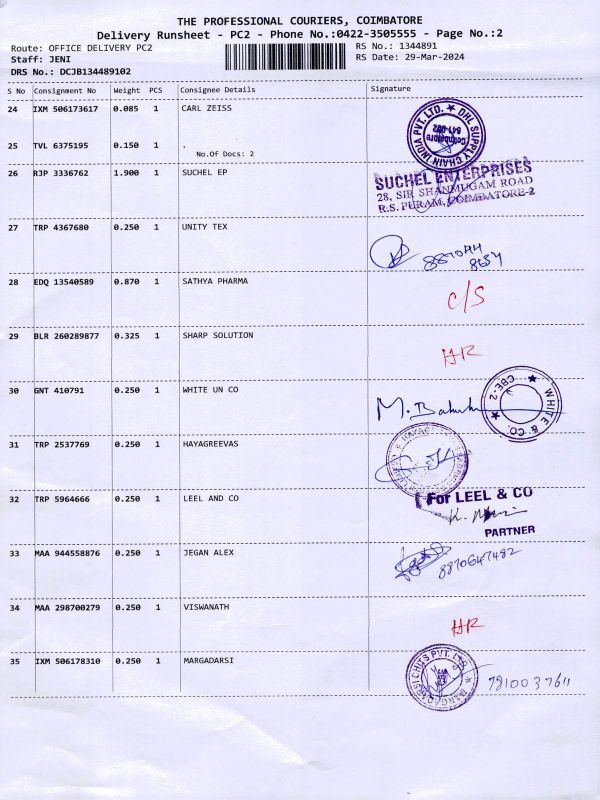 THE PROFESSIONAL COURIERS, COIMBATORE
Delivery Runsheet - PC2 - Phone No.:0422-3505555 - Page No.:2
Route: OFFICE DELIVERY PC2
Staff: JENI
DRS No.: DCJB134489102
RS No.: 1344891
RS Date: 29-Mar-2024
S No Consignment No Weight PCS Consignee Details Signature
24 IXM 506173617 0.085 1 CARL ZEISS
DHL SUPPLY CHAIN INDIA PVT. LTD.
Coimbatore
641 062
25 TVL 6375195 0.150 1 .
No.Of Docs: 2
26 RJP 3336762 1.900 1 SUCHEL EP
SUCHEL ENTERPRISES
28, SIR SHANMUGAM ROAD
R.S. PURAM, COIMBATORE-2
27 TRP 4367680 0.250 1 UNITY TEX
28 EDQ 13540589 0.870 1 SATHYA PHARMA
C/S
29 BLR 260289877 0.325 1 SHARP SOLUTION
HR
30 GNT 410791 0.250 1 WHITE UN CO
WHITE & CO. CBE-2
31 TRP 2537769 0.250 1 HAYAGREEVAS
32 TRP 5964666 0.250 1 LEEL AND CO
For LEEL & CO
PARTNER
33 MAA 944558876 0.250 1 JEGAN ALEX
8870647482
34 MAA 298700279 0.250 1 VISWANATH
HR
35 IXM 506178310 0.250 1 MARGADARSI
MARGADARSI CHITS PVT. LTD.